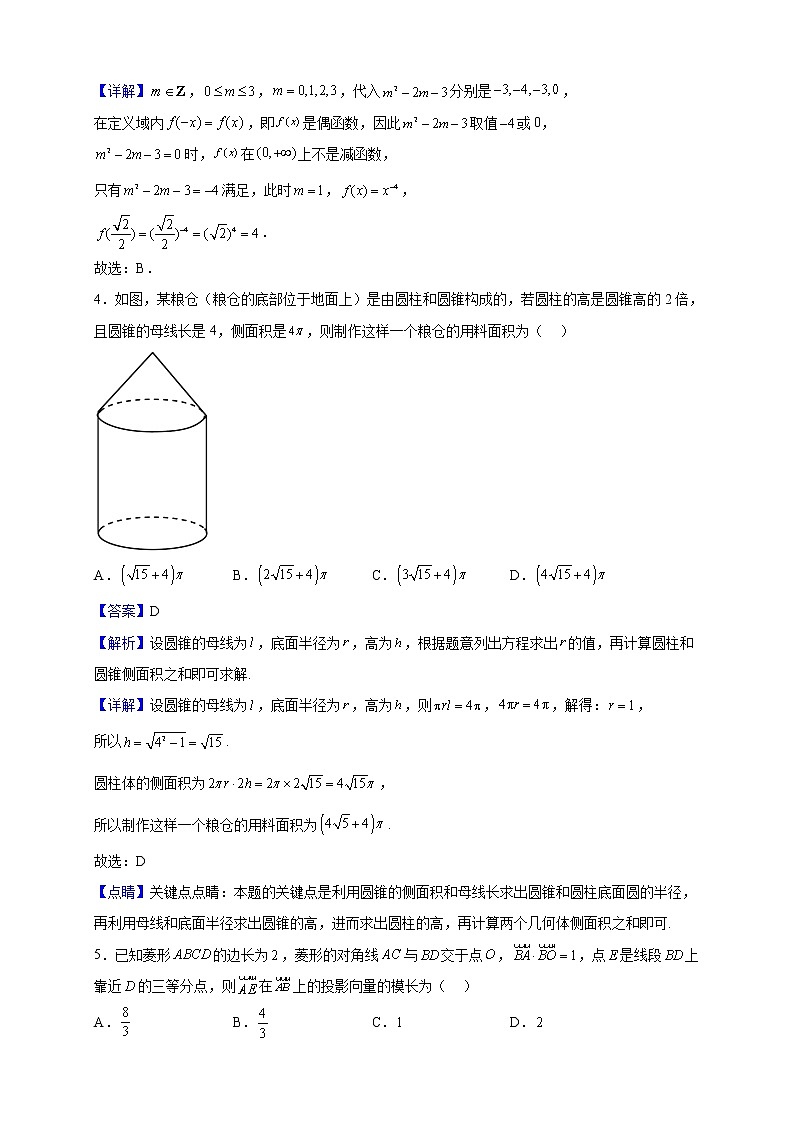 【详解】m∈Z，0≤m≤3，m=0,1,2,3，代入m²－2m－3分别是－3,－4,－3,0，
在定义域内f(－x)=f(x)，即f(x)是偶函数，因此m²－2m－3取值－4或0，
m²－2m－3=0时，f(x)在(0,+∞)上不是减函数，
只有m²－2m－3=－4满足，此时m=1，f(x)=x⁻⁴，
f(√2/2)=(√2/2)⁻⁴=(√2)⁴=4．
故选：B．
4．如图，某粮仓（粮仓的底部位于地面上）是由圆柱和圆锥构成的，若圆柱的高是圆锥高的2倍，
且圆锥的母线长是4，侧面积是4π，则制作这样一个粮仓的用料面积为（　）
A．(√15+4)π　B．(2√15+4)π　C．(3√15+4)π　D．(4√15+4)π
【答案】D
【解析】设圆锥的母线为l，底面半径为r，高为h，根据题意列出方程求出r的值，再计算圆柱和
圆锥侧面积之和即可求解.
【详解】设圆锥的母线为l，底面半径为r，高为h，则πrl=4π，4πr=4π，解得：r=1，
所以h=√(4²－1)=√15．
圆柱体的侧面积为2πr·2h=2π×2√15=4√15π，
所以制作这样一个粮仓的用料面积为(4√5+4)π．
故选：D
【点睛】关键点点睛：本题的关键点是利用圆锥的侧面积和母线长求出圆锥和圆柱底面圆的半径，
再利用母线和底面半径求出圆锥的高，进而求出圆柱的高，再计算两个几何体侧面积之和即可.
5．已知菱形ABCD的边长为2，菱形的对角线AC与BD交于点O，BA·BO=1，点E是线段BD上
靠近D的三等分点，则AE在AB上的投影向量的模长为（　）
A．8/3　B．4/3　C．1　D．2